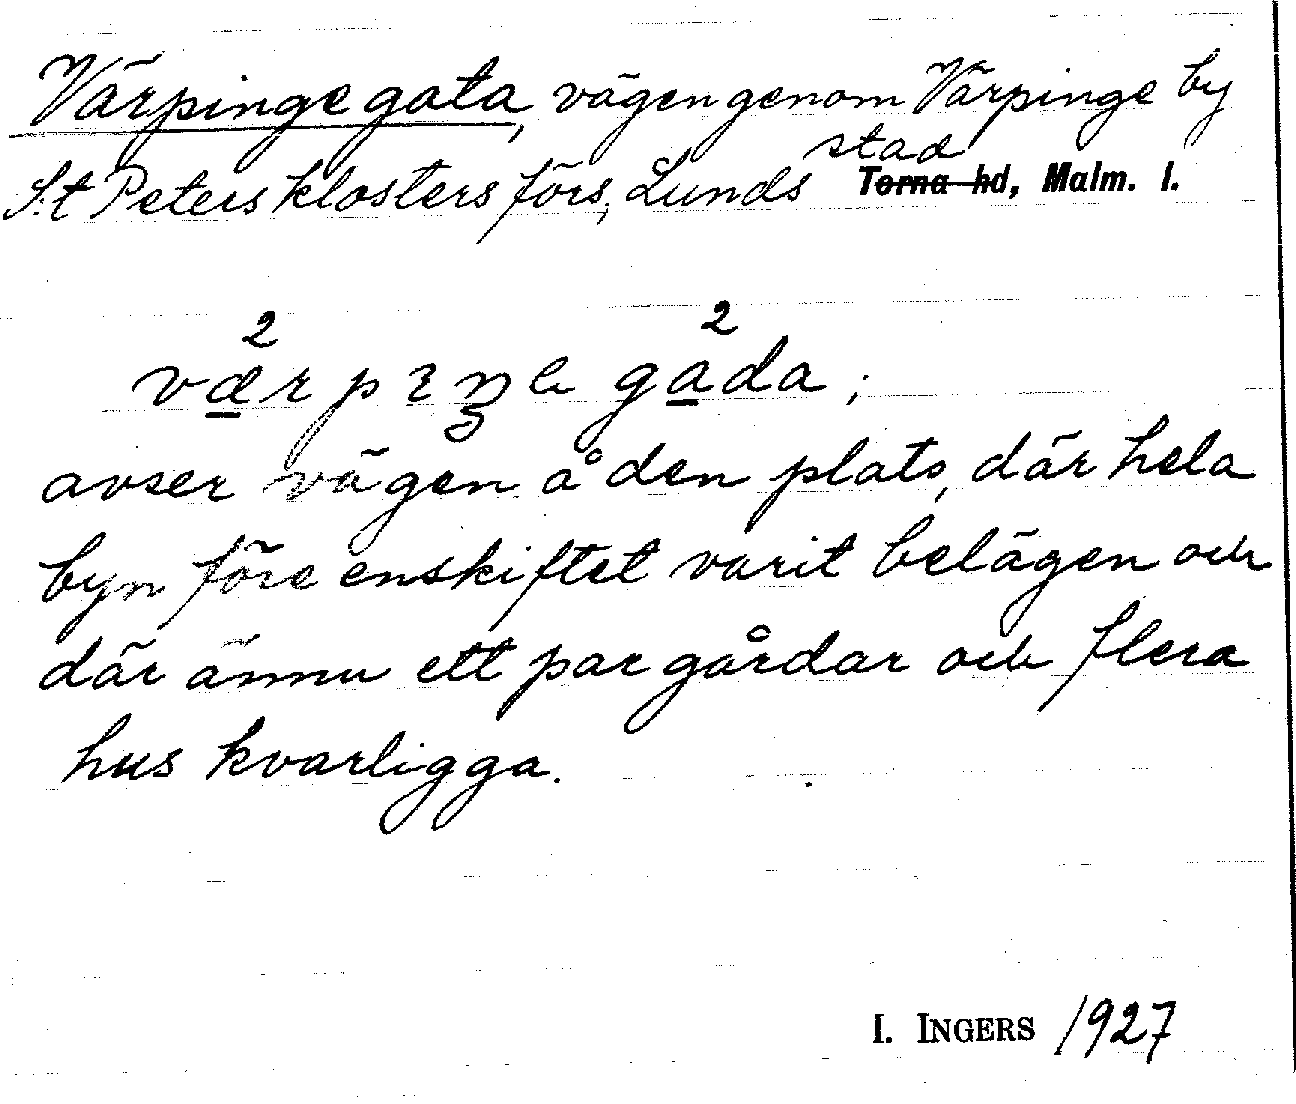 Värpinge gata, vägen genom Värpinge by
S:t Peters klosters förs, Lunds stad ~~Torna hd~~, Malm. l.
vä²rpıŋɛ ga²da;
avser vägen å den plats, där hela
byn före enskiftet varit belägen och
där ännu ett par gårdar och flera
hus kvarligga.
I. INGERS 1927